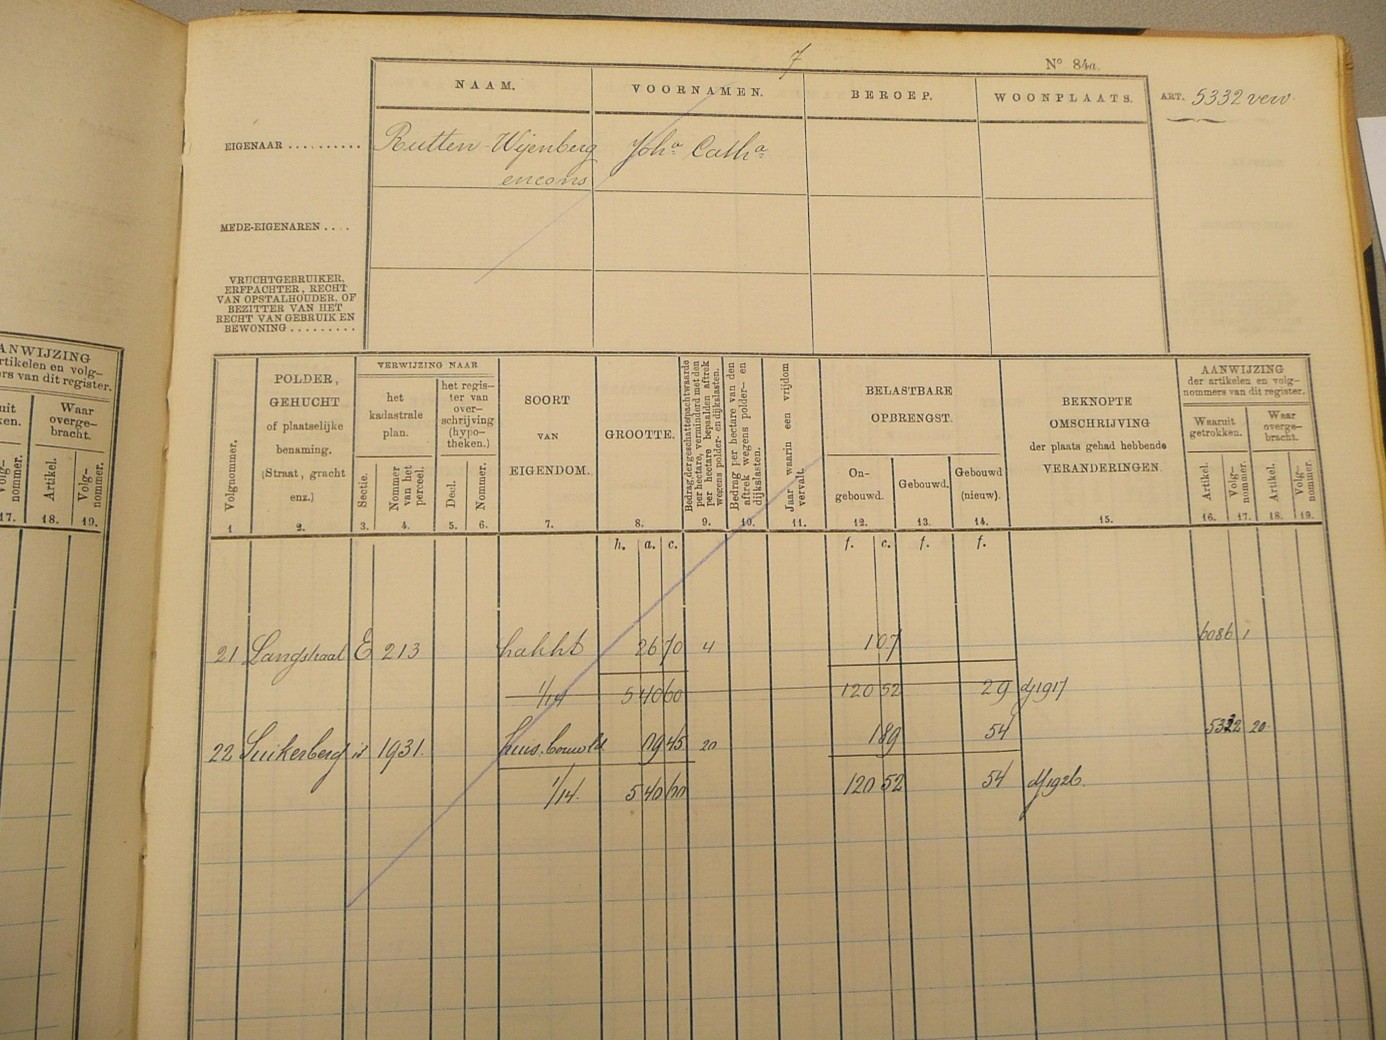 7
Nº 84a.
NAAM. VOORNAMEN. BEROEP. WOONPLAATS. ART. 5332 verv.
EIGENAAR .......... Rutten-Wijenberg Joh.ª Cath.ª
encons
MEDE-EIGENAREN ....
VRUCHTGEBRUIKER,
ERFPACHTER, RECHT
VAN OPSTALHOUDER, OF
BEZITTER VAN HET
RECHT VAN GEBRUIK EN
BEWONING .........
Volgnommer.
1
POLDER,
GEHUCHT
of plaatselijke
benaming.
(Straat, gracht
enz.)
2.
VERWIJZING NAAR
het
kadastrale
plan.
Sectie.
3.
Nommer
van het
perceel.
4.
het regis-
ter van
over-
schrijving
(hypo-
theken.)
Deel.
5.
Nommer.
6.
SOORT
VAN
EIGENDOM.
7.
GROOTTE.
8.
Bedrag der geschatte pachtwaarde
per hectare, verminderd met den
per hectare bepaalden aftrek
wegens polder- en dijkslasten.
9.
Bedrag per hectare van den
aftrek wegens polder- en
dijkslasten.
10.
Jaar waarin een vrijdom
vervalt.
11.
BELASTBARE
OPBRENGST.
On-
gebouwd.
12.
Gebouwd.
13.
Gebouwd
(nieuw).
14.
BEKNOPTE
OMSCHRIJVING
der plaats gehad hebbende
VERANDERINGEN.
15.
AANWIJZING
der artikelen en volg-
nommers van dit register.
Waaruit
getrokken.
Artikel.
16.
Volg-
nommer.
17.
Waar
overge-
bracht.
Artikel.
18.
Volg-
nommer.
19.
h. a. c. f. c. f. f.
21 Langstraat E 213 hakht 26 70 4 1 07 6086 1
1/14 5 40 60 120 52 29 dj 1917
22 Suikerberg id 1931. huis. bouwld. 09 45 20 1 89 54 5332 20
1/14. 5 40 60 120 52 54 dj 1926.
ANWIJZING
rtikelen en volg-
rs van dit register.
uit
ken.
Volg-
nommer.
17.
Waar
overge-
bracht.
Artikel.
18.
Volg-
nommer.
19.